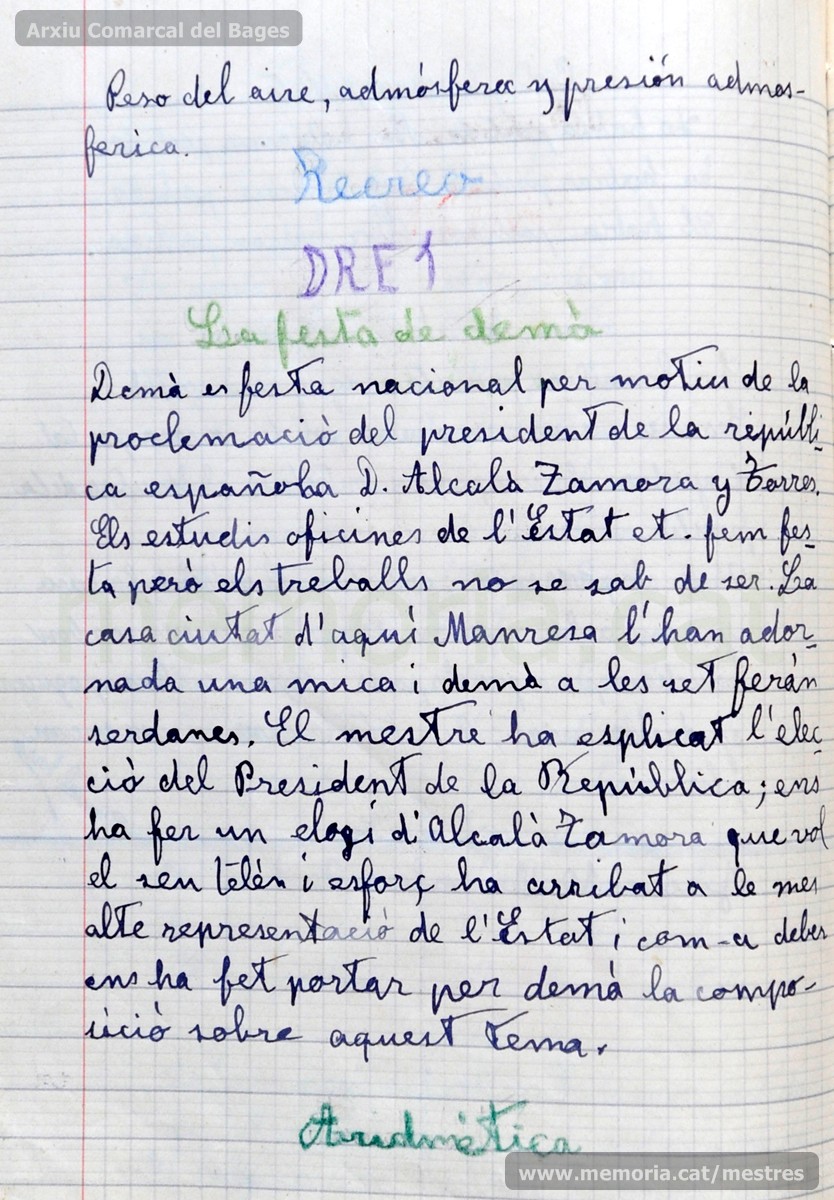 Arxiu Comarcal del Bages
Peso del aire, admósfera y presión admos-
ferica.
Recreo
DRET
La festa de demà
Demà es festa nacional per motiu de la
proclemació del president de la repúbli-
ca española D. Alcalà Zamora y Torres.
Els estudis oficines de l'Estat et. fem fes-
ta però els treballs no se sab de ser. La
casa ciutat d'aquí Manresa l'han ador-
nada una mica i demà a les set ferán
serdanes. El mestre ha esplicat l'elec-
ció del President de la República; ens
ha fer un elogi d'Alcalà Zamora que vol
el seu telén i esforç ha arribat a le mes
alte representació de l'Estat i com-a deber
ens ha fet portar per demà la compo-
sició sobre aquest tema.
Aridmètica
www.memoria.cat/mestres